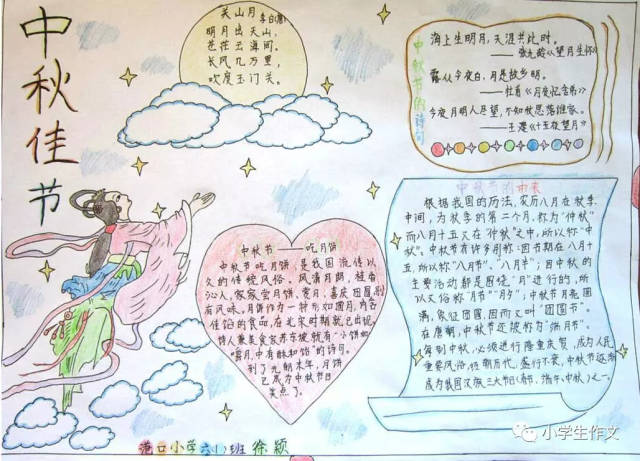 中秋佳节
关山月
李白(唐)
明月出天山,
苍茫云海间。
长风几万里,
吹度玉门关。
中秋节的诗句
海上生明月,天涯共此时。
——张九龄《望月怀远》
露从今夜白,月是故乡明。
——杜甫《月夜忆舍弟》
今夜月明人尽望,不知秋思落谁家。
——王建《十五夜望月》
中秋节——吃月饼
中秋节吃月饼,是我国流传以
久的传统风俗。风清月朗,桂香
沁人,家家尝月饼,赏月,喜庆团圆,别
有风味。月饼作为一种形如圆月,内含
佳馅的食品,在北宋时期就已出现,
诗人兼美食家苏东坡就有“小饼如
嚼月,中有酥和饴”的诗句。
到了元朝末年,月饼
已成为中秋节日
点了。
中秋节的由来
根据我国的历法,农历八月在秋季
中间,为秋季的第二个月,称为“仲秋”
而八月十五又在“仲秋”之中,所以称“中
秋”。中秋节有许多别称:因节期在八月十
五,所以称“八月节”、“八月半”;因中秋的
主要活动都是围绕“月”进行的,所
以又俗称“月节”“月夕”;中秋节月亮圆
满,象征团圆,因而又叫“团圆节”。
在唐朝,中秋节还被称为“端月节”。
每到中秋,必须进行隆重庆祝,成为人民
重要风俗,经朝历代,盛行不衰,中秋节还渐
成为我国汉族三大节日(春节,端午,中秋)之一。
港口小学六(1)班 徐颖
小学生作文